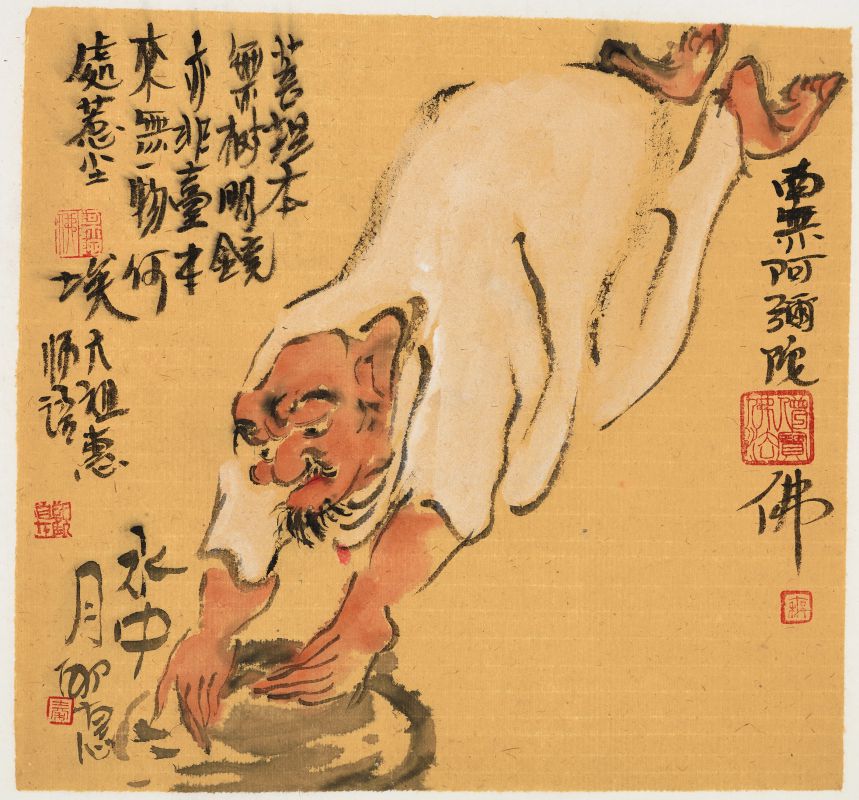 南無阿彌陀
佛
菩提本
無树明鏡
亦非臺本
來無一物何
處惹尘
埃
六祖惠
师語
水中
月